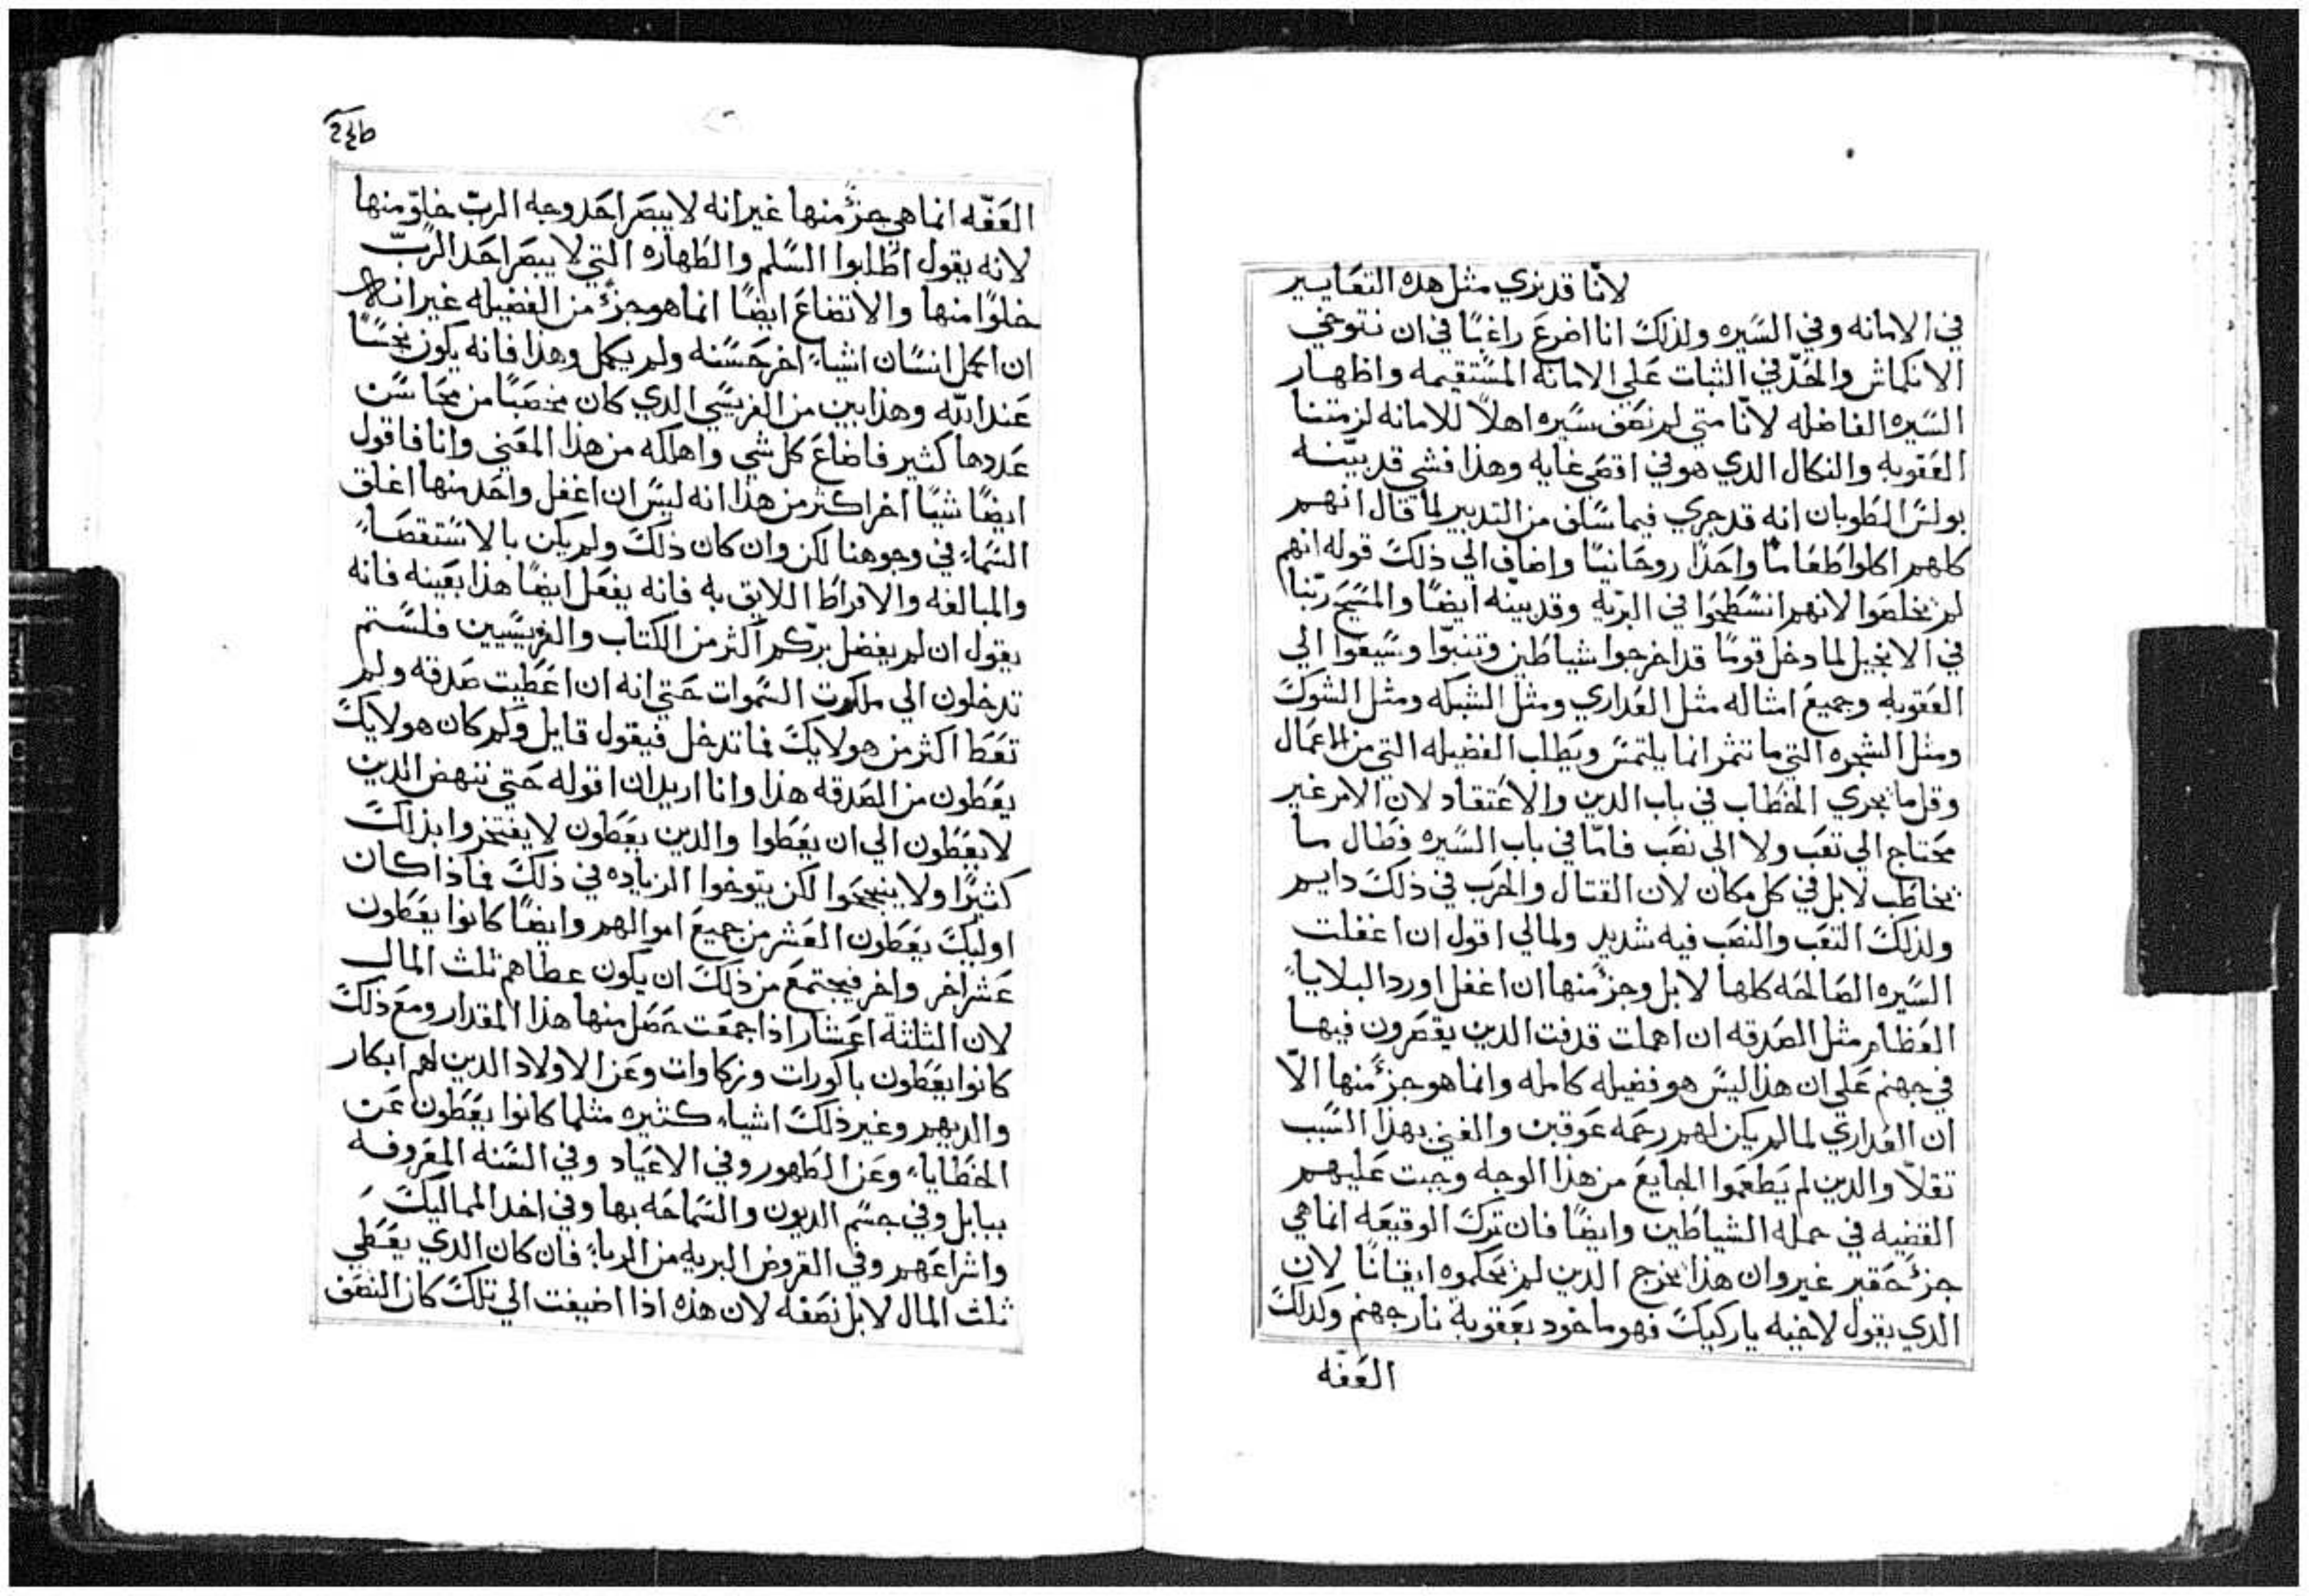 لانّا قد نري مثل هده التعَايير
في الامانه وفي السَيره ولذلكَ انا اضرعَ راغبًا في ان نتوخي
الانكماش والحَدّ في الثبات عَلي الامانه المسَتقيمه واظهار
السَيره الفاضله لانّا متي لم نصَف سَيره اهلاً للامانه لزمتنا
العَقوبه والنكال الدي هو في اقصَي غايه وهذا فشي قد بيّنه
بولسَ الطوبان انه قد جري فيما سَلف من التدبير لما قال انهم
كلهم اكلوا طعَامًا واحَدًا روحَانيًا واضاف الي ذلكَ قوله انهم
لم يخلصَوا لانهم انسَطحَوا في البرّيه وقد بيّنه ايضًا والمسَيحَ ربّنا
في الانجيل لما دخل قومًا قد اخرجوا شياطين وتنبوّا وسَيقوا الي
العَقوبه وجميعَ امثاله مثل العَداري ومثل الشبكه ومثل الشوكَ
ومثل الشجره التي ما تثمر انما يلتمسَ ويَطلب الفضيله التي من الاعَمال
وقل ما يجري الخطاب في باب الدين والاعَتقاد لان الامر غير
محَتاج الي تعَب ولا الي نصَب فامّا في باب السَيره فطال ما
يخاطَب لابل في كل مكان لان القتال والحرَب في ذلكَ دايم
ولذلكَ التعَب والنصَب فيه شديد ولما لي اقول ان اغفلت
السَيره الصَالحَه كلها لابل وجزءٌ منها ان اغفل اورد البلايا
العَظام مثل الصَدقه ان اهملت قدفت الدين يقصَرون فيها
في جهنم عَلي ان هذا ليسَ هو فضيله كامله وانما هو جزءٌ منها الّا
ان العَداري لما لم يكن لهم رحَمه عَوقبن والغني بهذا السَبب
تقلاّ والدين لم يَطعَموا الجايعَ من هذا الوجه وجبت عَليهم
القضيه في حمله الشياطين وايضًا فان تركَ الوقيعَه انما هي
جزءٌ حَقير غير وان هذا يخرج الدين لم يحَكموه ايقانًا لان
الدي يقول لاخيه ياركيكَ فهو ماخود بعَقوبة نار جهنم وكدلكَ
العَفّه
العَفّه انما هي جزءٌ منها غير انه لا يبصَر احَد وجه الربّ خلوّ منها
لانه يقول اطلبوا السَلم والطهاره التي لا يبصَر احَد الربّ
خلوًا منها والاتضاعَ ايضًا انما هو جزءٌ من الفضيله غير انه
ان اكمل انسَان اشياء اخر حَسَنه ولم يكمل وهذا فانه يكون نجسًَا
عَند الله وهذا بين من الفريسَي الدي كان مخصَبًا من محَاسَن
عَددها كثير فاضاعَ كل شي واهلكه من هذا المعَني وانا فاقول
ايضًا شيًا اخر اكثر من هذا انه ليسَ ان اغفل واحَد منها اغلق
السَماء في وجوهنا لكن وان كان ذلكَ ولم يكن بالاسَتقصَاء
والمبالغه والافراط اللايق به فانه يفعَل ايضًا هذا بعَينه فانه
يقول ان لم يفضل برّكم اكثر من الكتاب والفريسَيين فلسَتم
تدخلون الي ملكوت السَموات حَتي انه ان اعَطيت صَدقه ولم
تعَط اكثر من هولايكَ فما تدخل فيقول قايل وكم كان هولايكَ
يعَطون من الصَدقه هذا وانا اريد ان اقوله حَتي ننهض الدين
لا يعَطون الي ان يعَطوا والدين يعَطون لا يفتخروا بذلكَ
كثيرًا ولا يتبجحَوا لكن يتوخوا الزياده في ذلكَ فماذا كان
اوليكَ يعَطون العَشر من جميعَ اموالهم وايضًا كانوا يعَطون
عَشرًا خر واخر فيجتمعَ من ذلكَ ان يكون عطاهم ثلث المال
لان الثلثة اعَشار اذا جمعَت حَصَل منها هذا المقدار ومعَ ذلكَ
كانوا يعَطون باكورات وزكاوات وعَن الاولاد الدين لهم ابكار
والديهم وغير ذلكَ اشياء كثيره مثلما كانوا يعَطون عَن
الخطايا وعَن الطهور وفي الاعَياد وفي السَنه المعَروفه
ببابل وفي جسَم الديون والسَماحَه بها وفي اخد المماليكَ
واشراعَهم وفي القروض البريه من الربا فان كان الدي يعَطي
ثلث المال لابل نصَفه لان هذه اذا اضيفت الي تلكَ كان النصَف